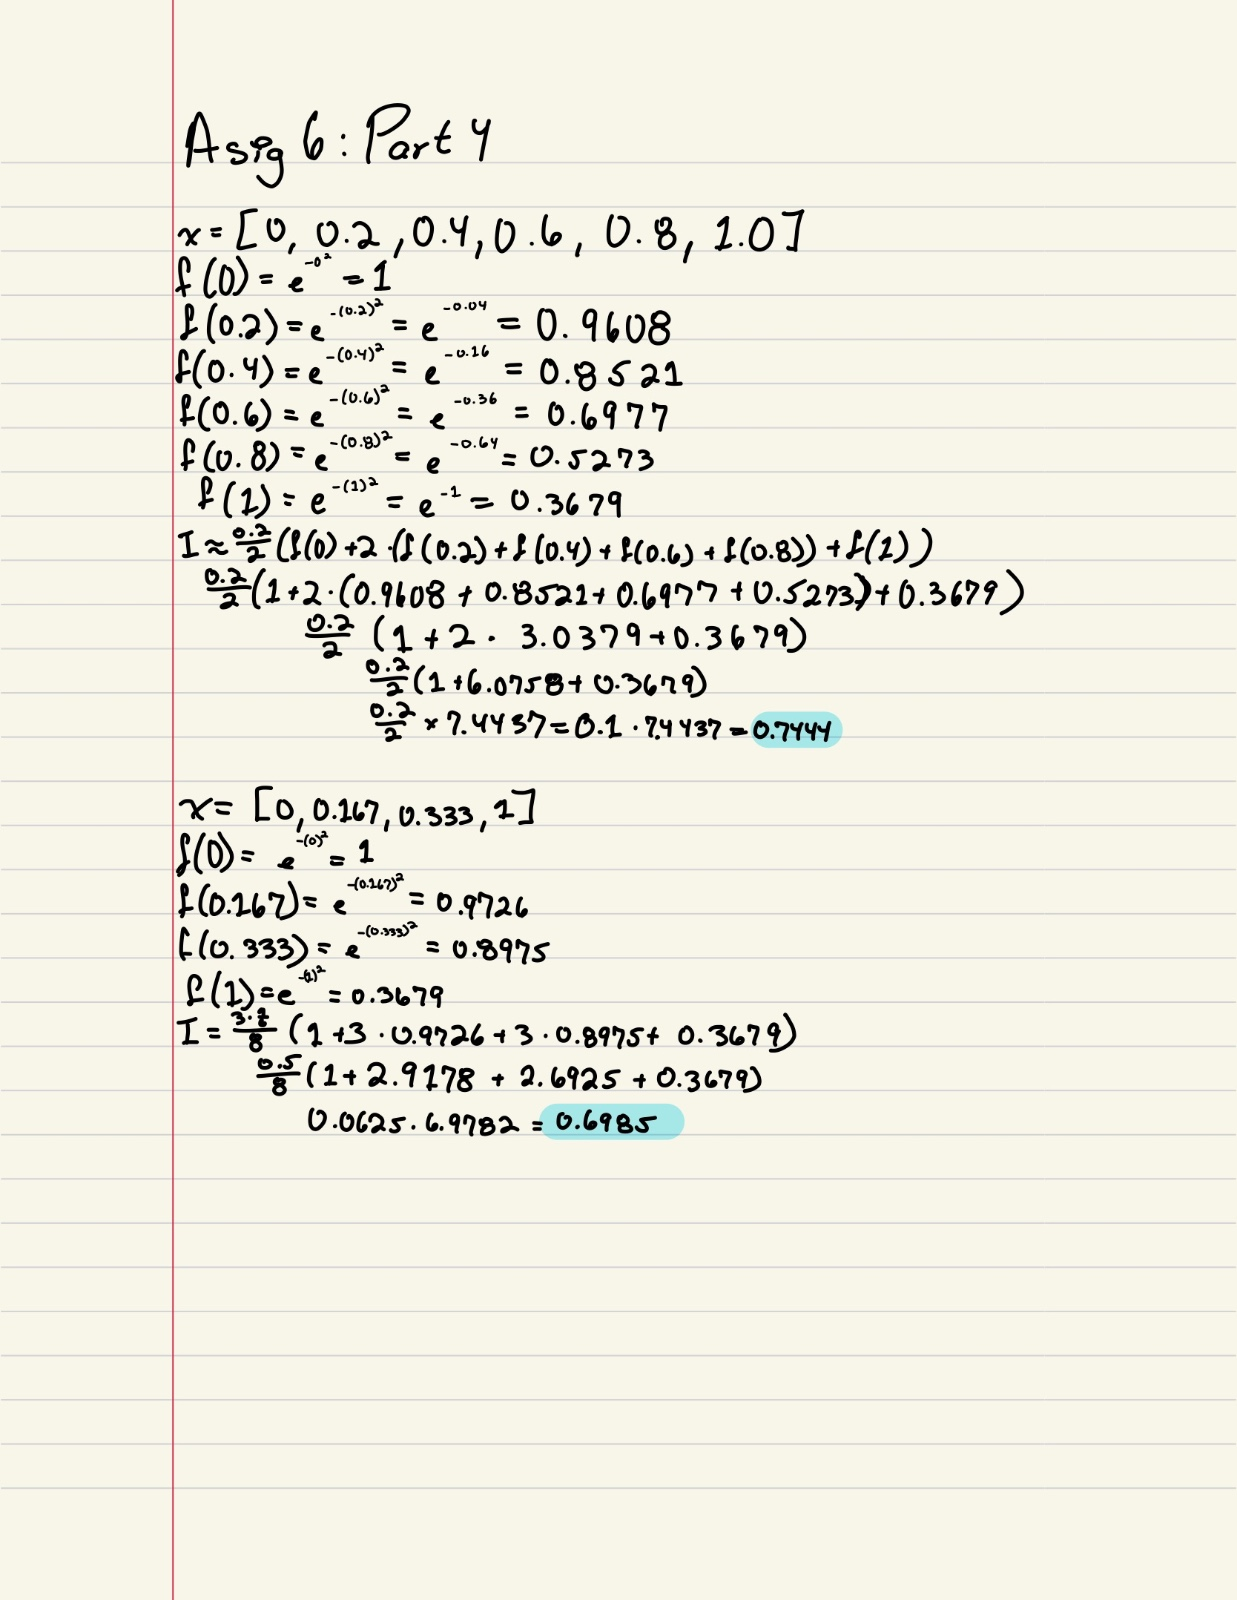 Asig 6: Part 4
x = [0, 0.2, 0.4, 0.6, 0.8, 1.0]
f(0) = e^-0² = 1
f(0.2) = e^-(0.2)² = e^-0.04 = 0.9608
f(0.4) = e^-(0.4)² = e^-0.16 = 0.8521
f(0.6) = e^-(0.6)² = e^-0.36 = 0.6977
f(0.8) = e^-(0.8)² = e^-0.64 = 0.5273
f(1) = e^-(1)² = e^-1 = 0.3679
I ≈ 0.2/2 (f(0) + 2 · (f(0.2) + f(0.4) + f(0.6) + f(0.8)) + f(1))
0.2/2 (1 + 2 · (0.9608 + 0.8521 + 0.6977 + 0.5273) + 0.3679)
0.2/2 (1 + 2 · 3.0379 + 0.3679)
0.2/2 (1 + 6.0758 + 0.3679)
0.2/2 × 7.4437 = 0.1 · 7.4437 = 0.7444
x = [0, 0.167, 0.333, 1]
f(0) = e^-(0)² = 1
f(0.167) = e^-(0.167)² = 0.9726
f(0.333) = e^-(0.333)² = 0.8975
f(1) = e^-(1)² = 0.3679
I = /8 (1 + 3 · 0.9726 + 3 · 0.8975 + 0.3679)
0.5/8 (1 + 2.9178 + 2.6925 + 0.3679)
0.0625 · 6.9782 = 0.6985